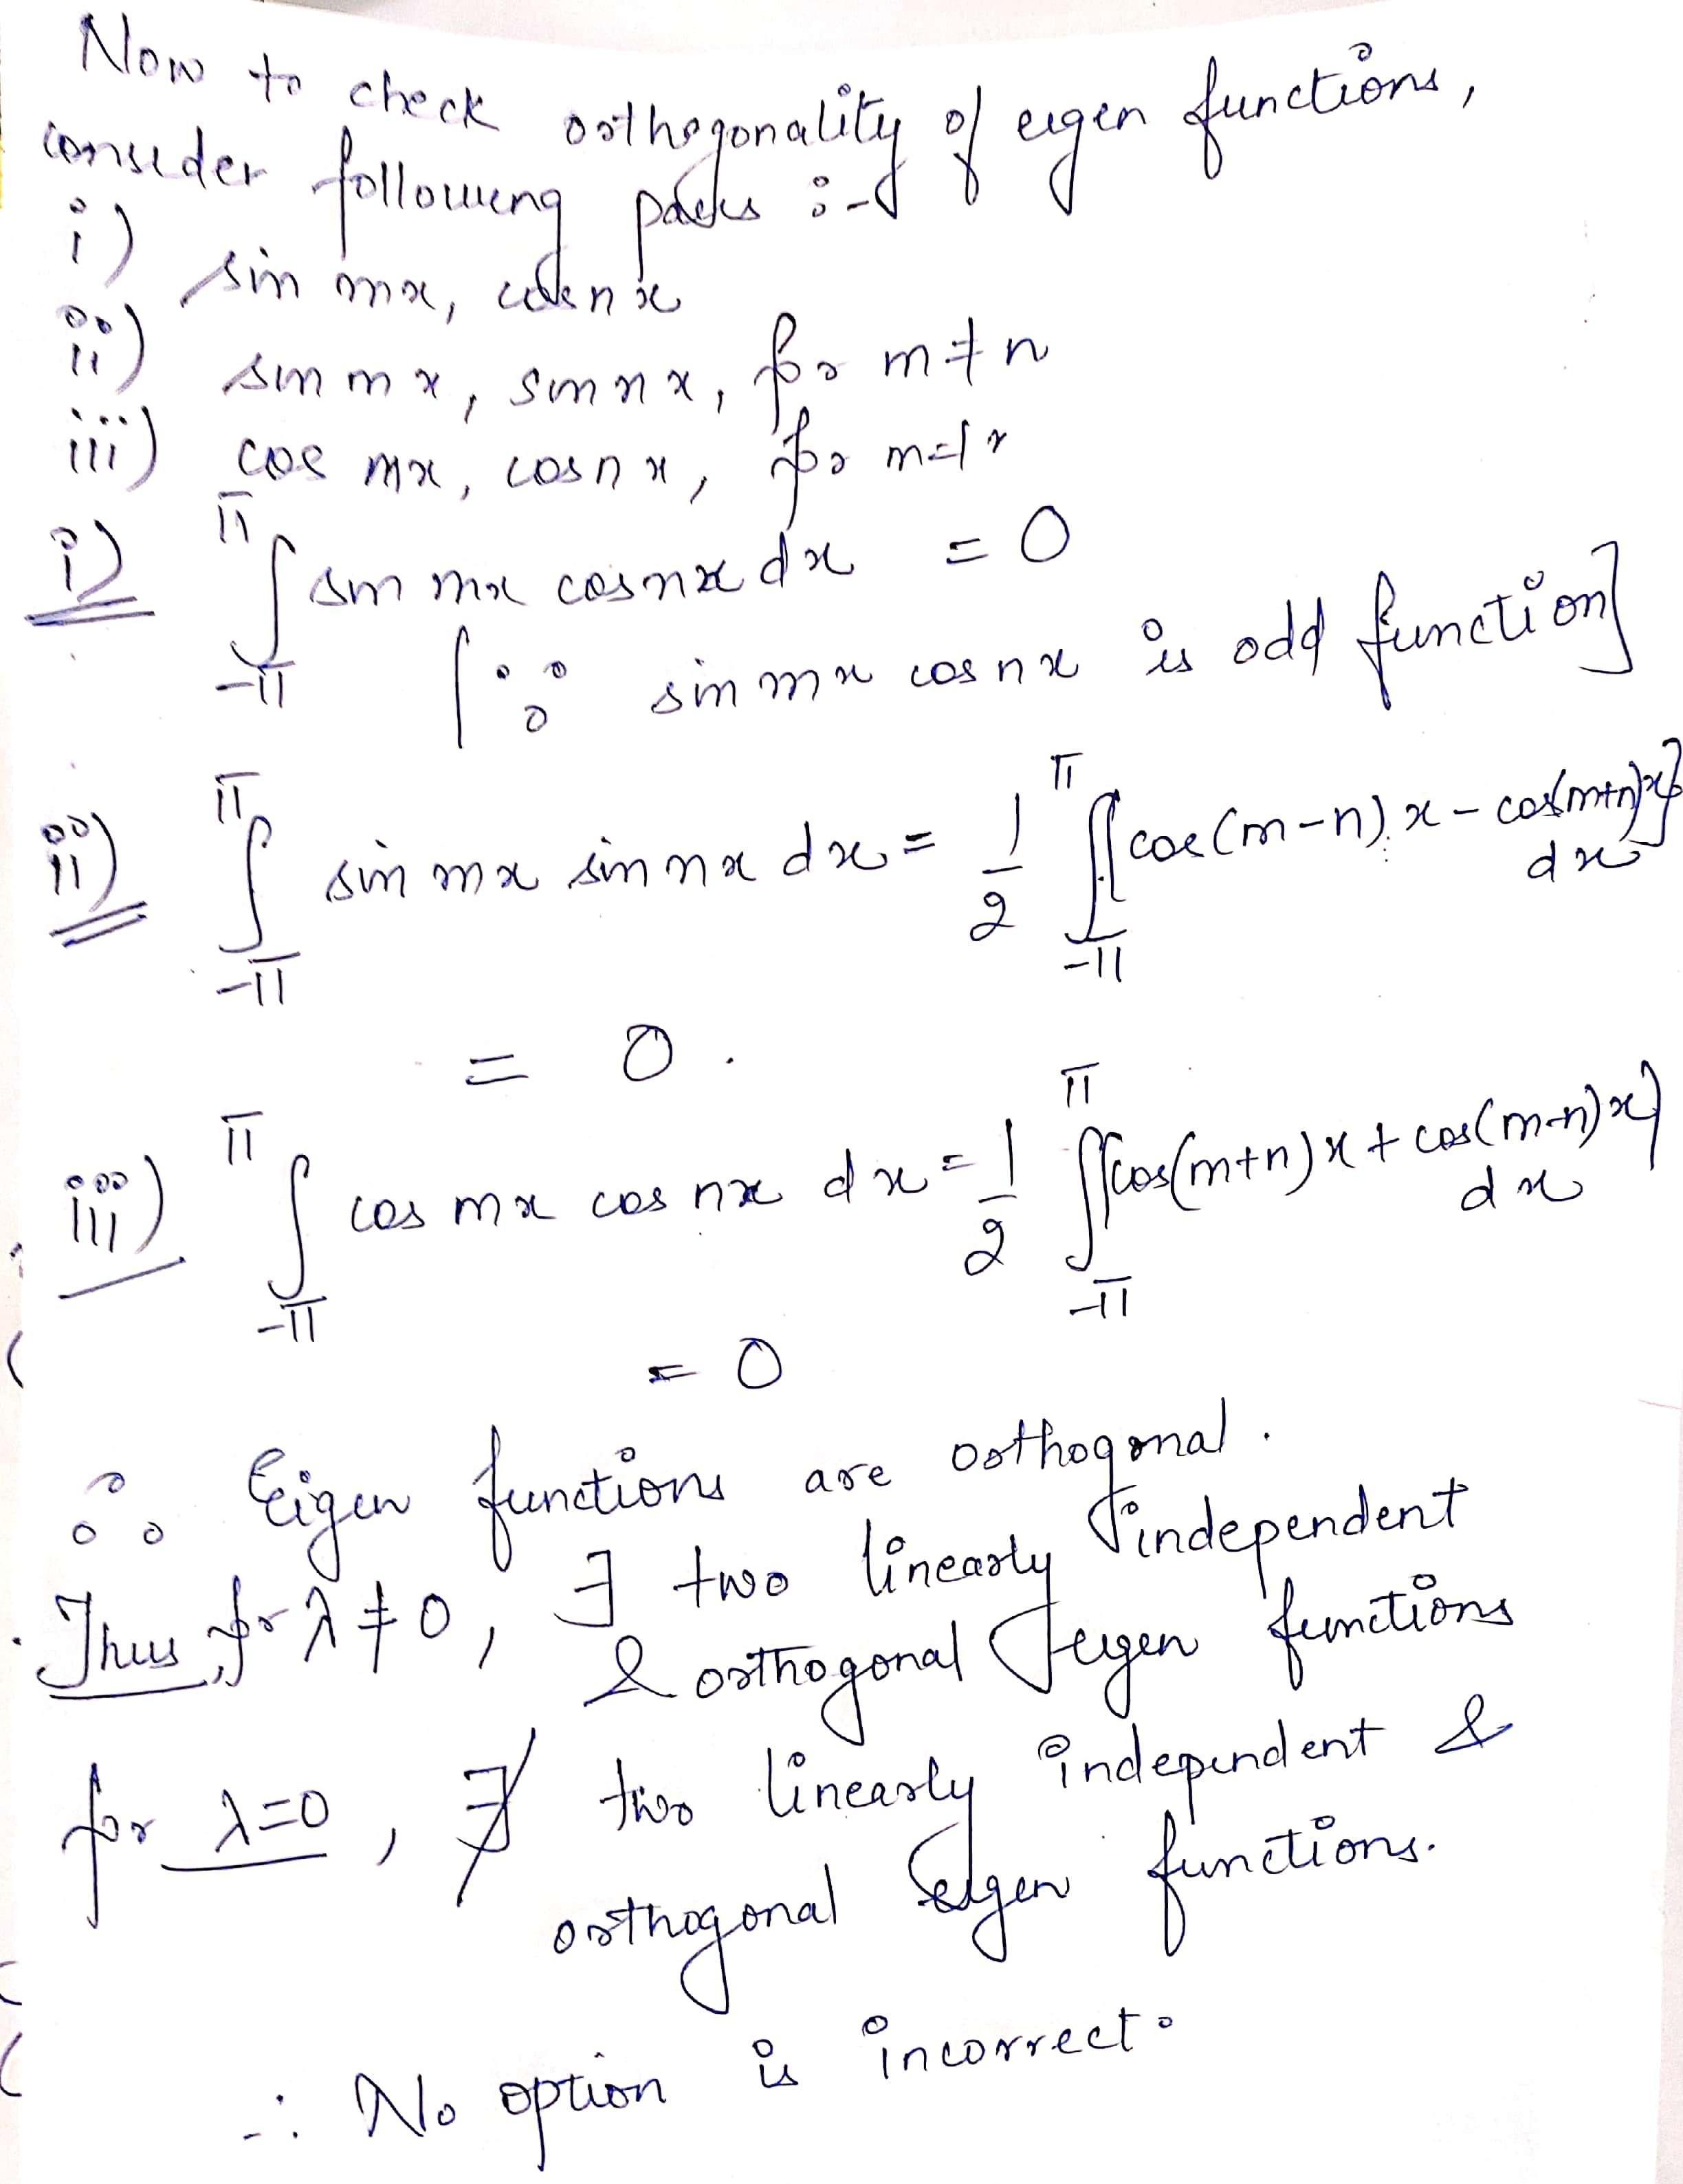 Now to check orthogonality of eigen functions,
consider following pairs :-
i) sin mx, cos nx
ii) sin mx, sin nx, for m≠n
iii) cos mx, cos nx, for m≠n
i) ∫_{-π}^{π} sin mx cos nx dx = 0
[∵ sin mx cos nx is odd function]
ii) ∫_{-π}^{π} sin mx sin nx dx = 1/2 ∫_{-π}^{π} [cos(m-n)x - cos(m+n)x] dx
= 0.
iii) ∫_{-π}^{π} cos mx cos nx dx = 1/2 ∫_{-π}^{π} [cos(m+n)x + cos(m-n)x] dx
= 0
∴ Eigen functions are orthogonal.
Thus for λ ≠ 0, ∃ two linearly independent
& orthogonal eigen functions
for λ=0, ∄ two linearly independent &
orthogonal eigen functions.
∴ No option is incorrect.